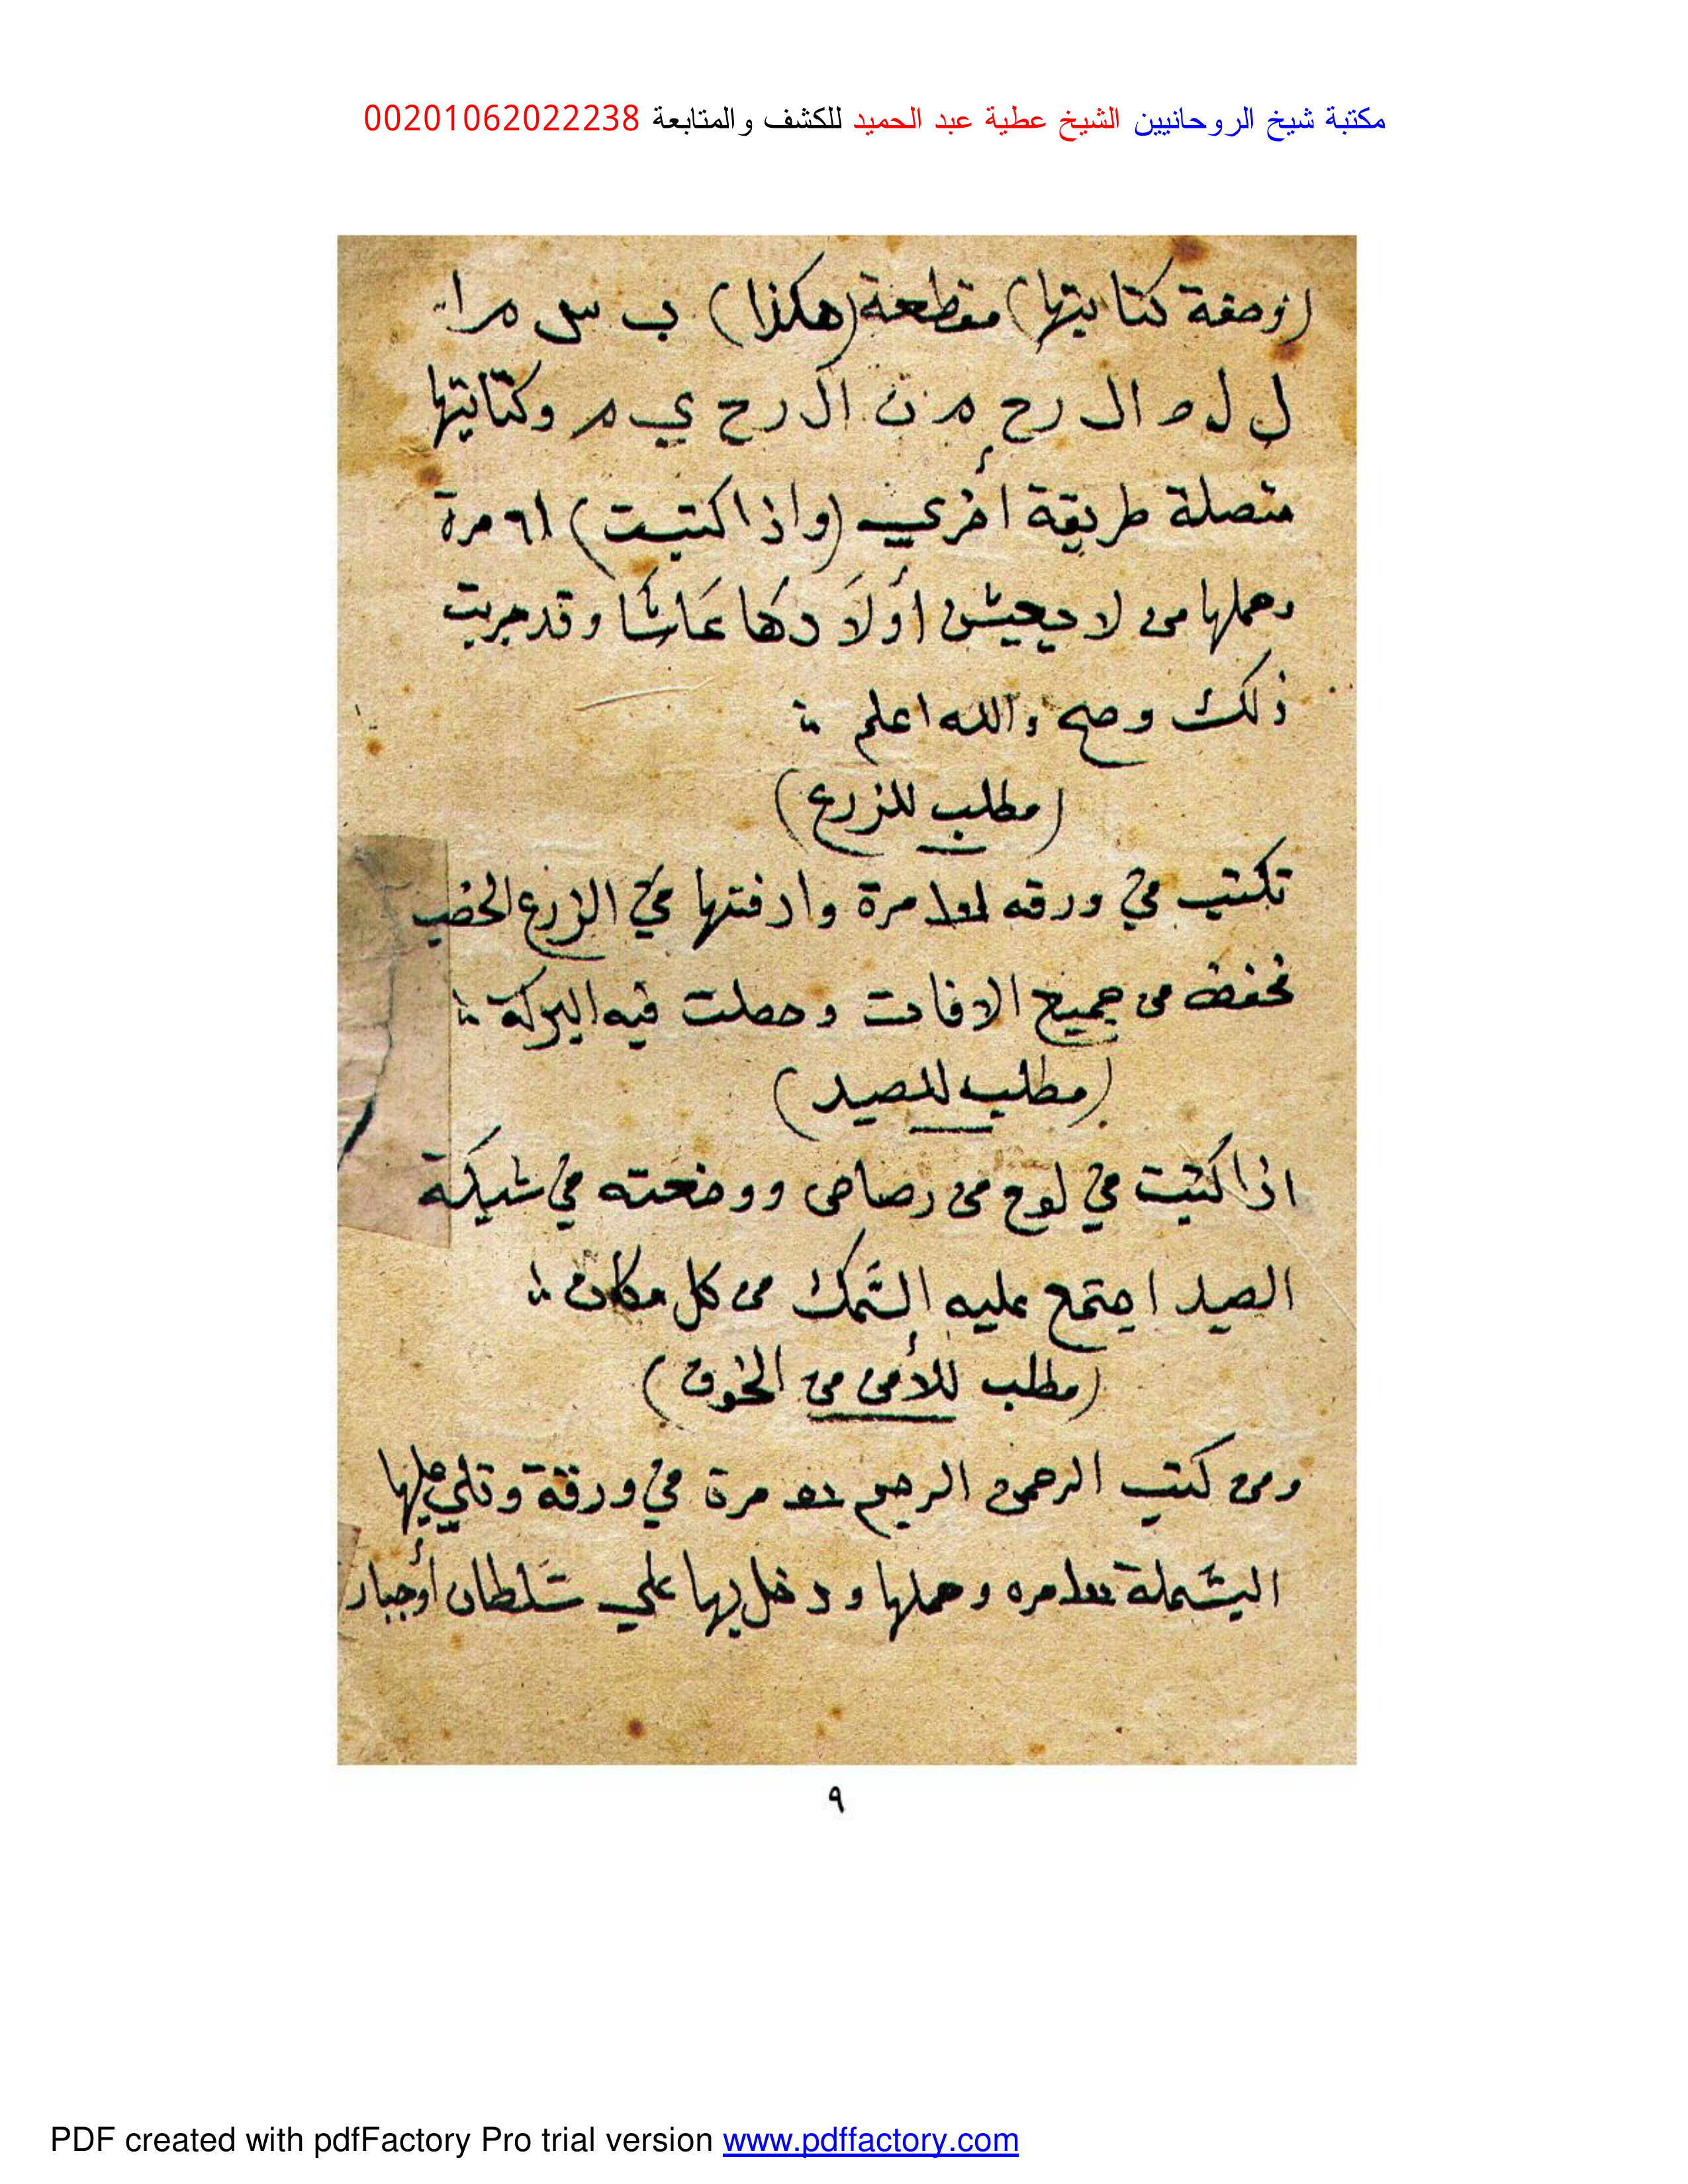 مكتبة شيخ الروحانيين الشيخ عطية عبد الحميد للكشف والمتابعة 00201062022238
(وصفة كتابتها) مقطعة (هكذا) ب س م ا
ل ل ه ال ر ح م ن ال ر ح ي م وكتابتها
متصلة طريقة أخري (واذا كتبت) ٦١ مرة
وحملها من لا يعيش أولَادها عَاشا وقد جربت
ذلك وصح والله اعلم
(مطلب للزرع)
تكتب في ورقه مرة وادفنها في الزرع الخضب
تحفض من جميع الافات وحصلت فيه البركة
(مطلب للصيد)
اذا كتبت في لوح من رصاص ووضعته في شبكة
الصيد اجتمع عليه السَّمك من كل مكان
(مطلب للأمن من الخوف)
ومن كتب الرحمن الرحيم مرة في ورقة وتلي عليها
البسملة مره وحملها ودخل بها علي سَلطان أوجبار
٩
PDF created with pdfFactory Pro trial version www.pdffactory.com